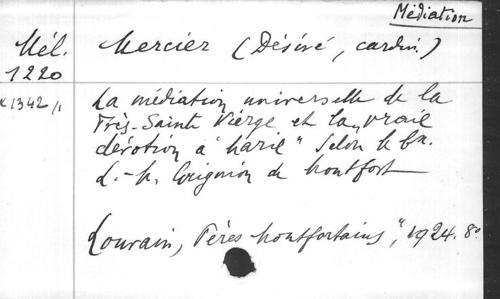 Médiation
Mél. Mercier (Désiré, cardin.)
1220
x1342/1 La médiation universelle de la
Très-Sainte Vierge et la "vraie
dévotion à Marie" selon le bx.
L.-M. Grignion de Montfort
Louvain, "Pères Montfortains", 1924. 8°